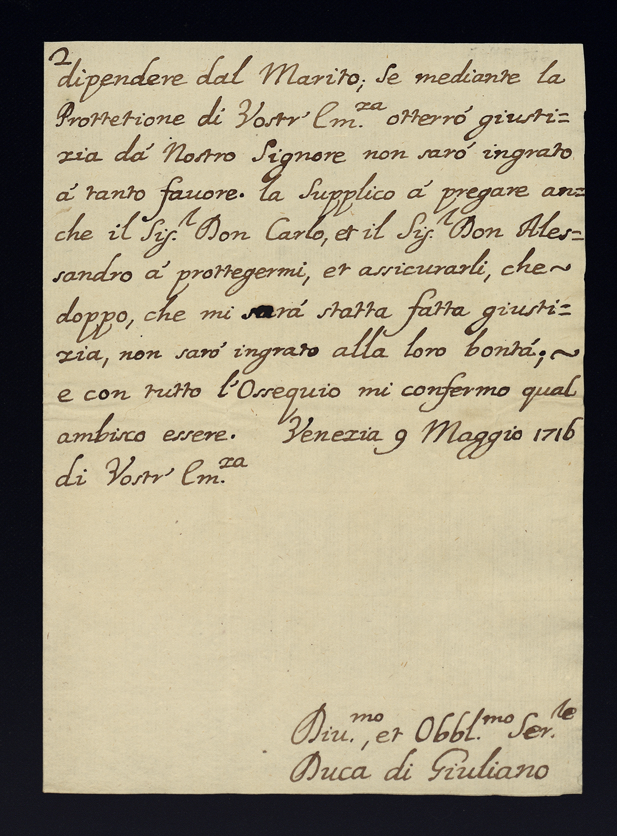 2
dipendere dal Marito; Se mediante la
Prottetione di Vostr' Em.za otterró giusti=
zia dá Nostro Signore non saró ingrato
á tanto fauore. la Supplico á pregare an=
che il Sig.r Don Carlo, et il Sig.r Don Ales=
sandro á prottegermi, et assicurarli, che~
doppo, che mi sará statta fatta giusti=
zia, non saró ingrato alla loro bontá;~
e con tutto l'Ossequio mi confermo qual
ambisco essere. Venezia 9 Maggio 1716
di Vostr' Em.za
Diu.mo, et Obbl.mo Ser.le
Duca di Giuliano